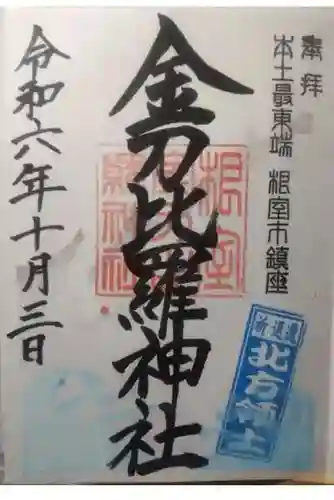 奉拝
本土最東端 根室市鎮座
金刀比羅神社
根室
金刀比羅神社
返還
北方領土
令和六年十月三日